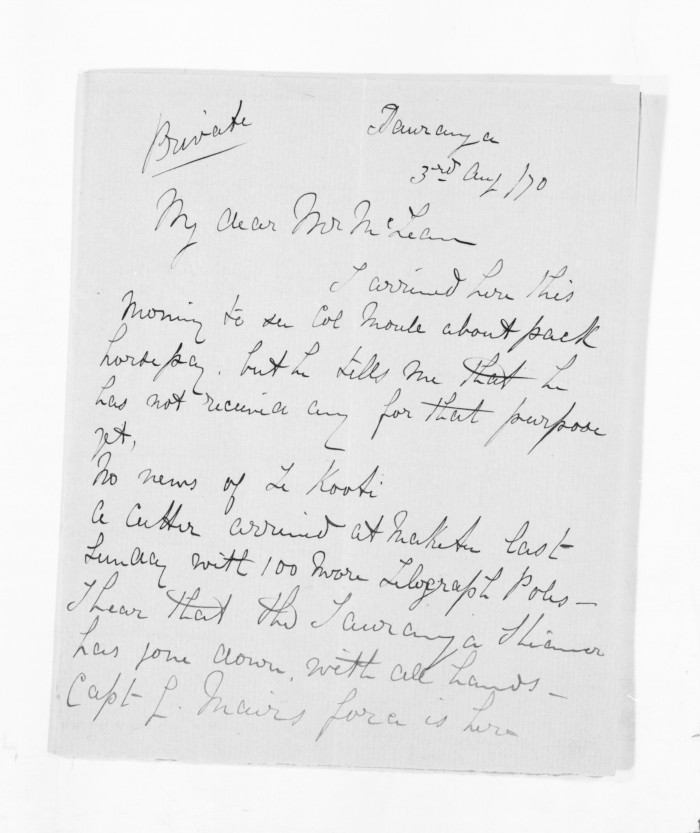 Private
Tauranga
3rd Aug /70
My dear Mr McLean
I arrived here this
morning to see Col Moule about pack
horse pay. but he tells me that he
has not received any for that purpose
yet,
No news of Te Kooti
a cutter arrived at Maketu last
Sunday with 100 more Telegraph Poles —
I hear that the Tauranga Steamer
has gone down, with all hands —
Capt G. Mairs force is here